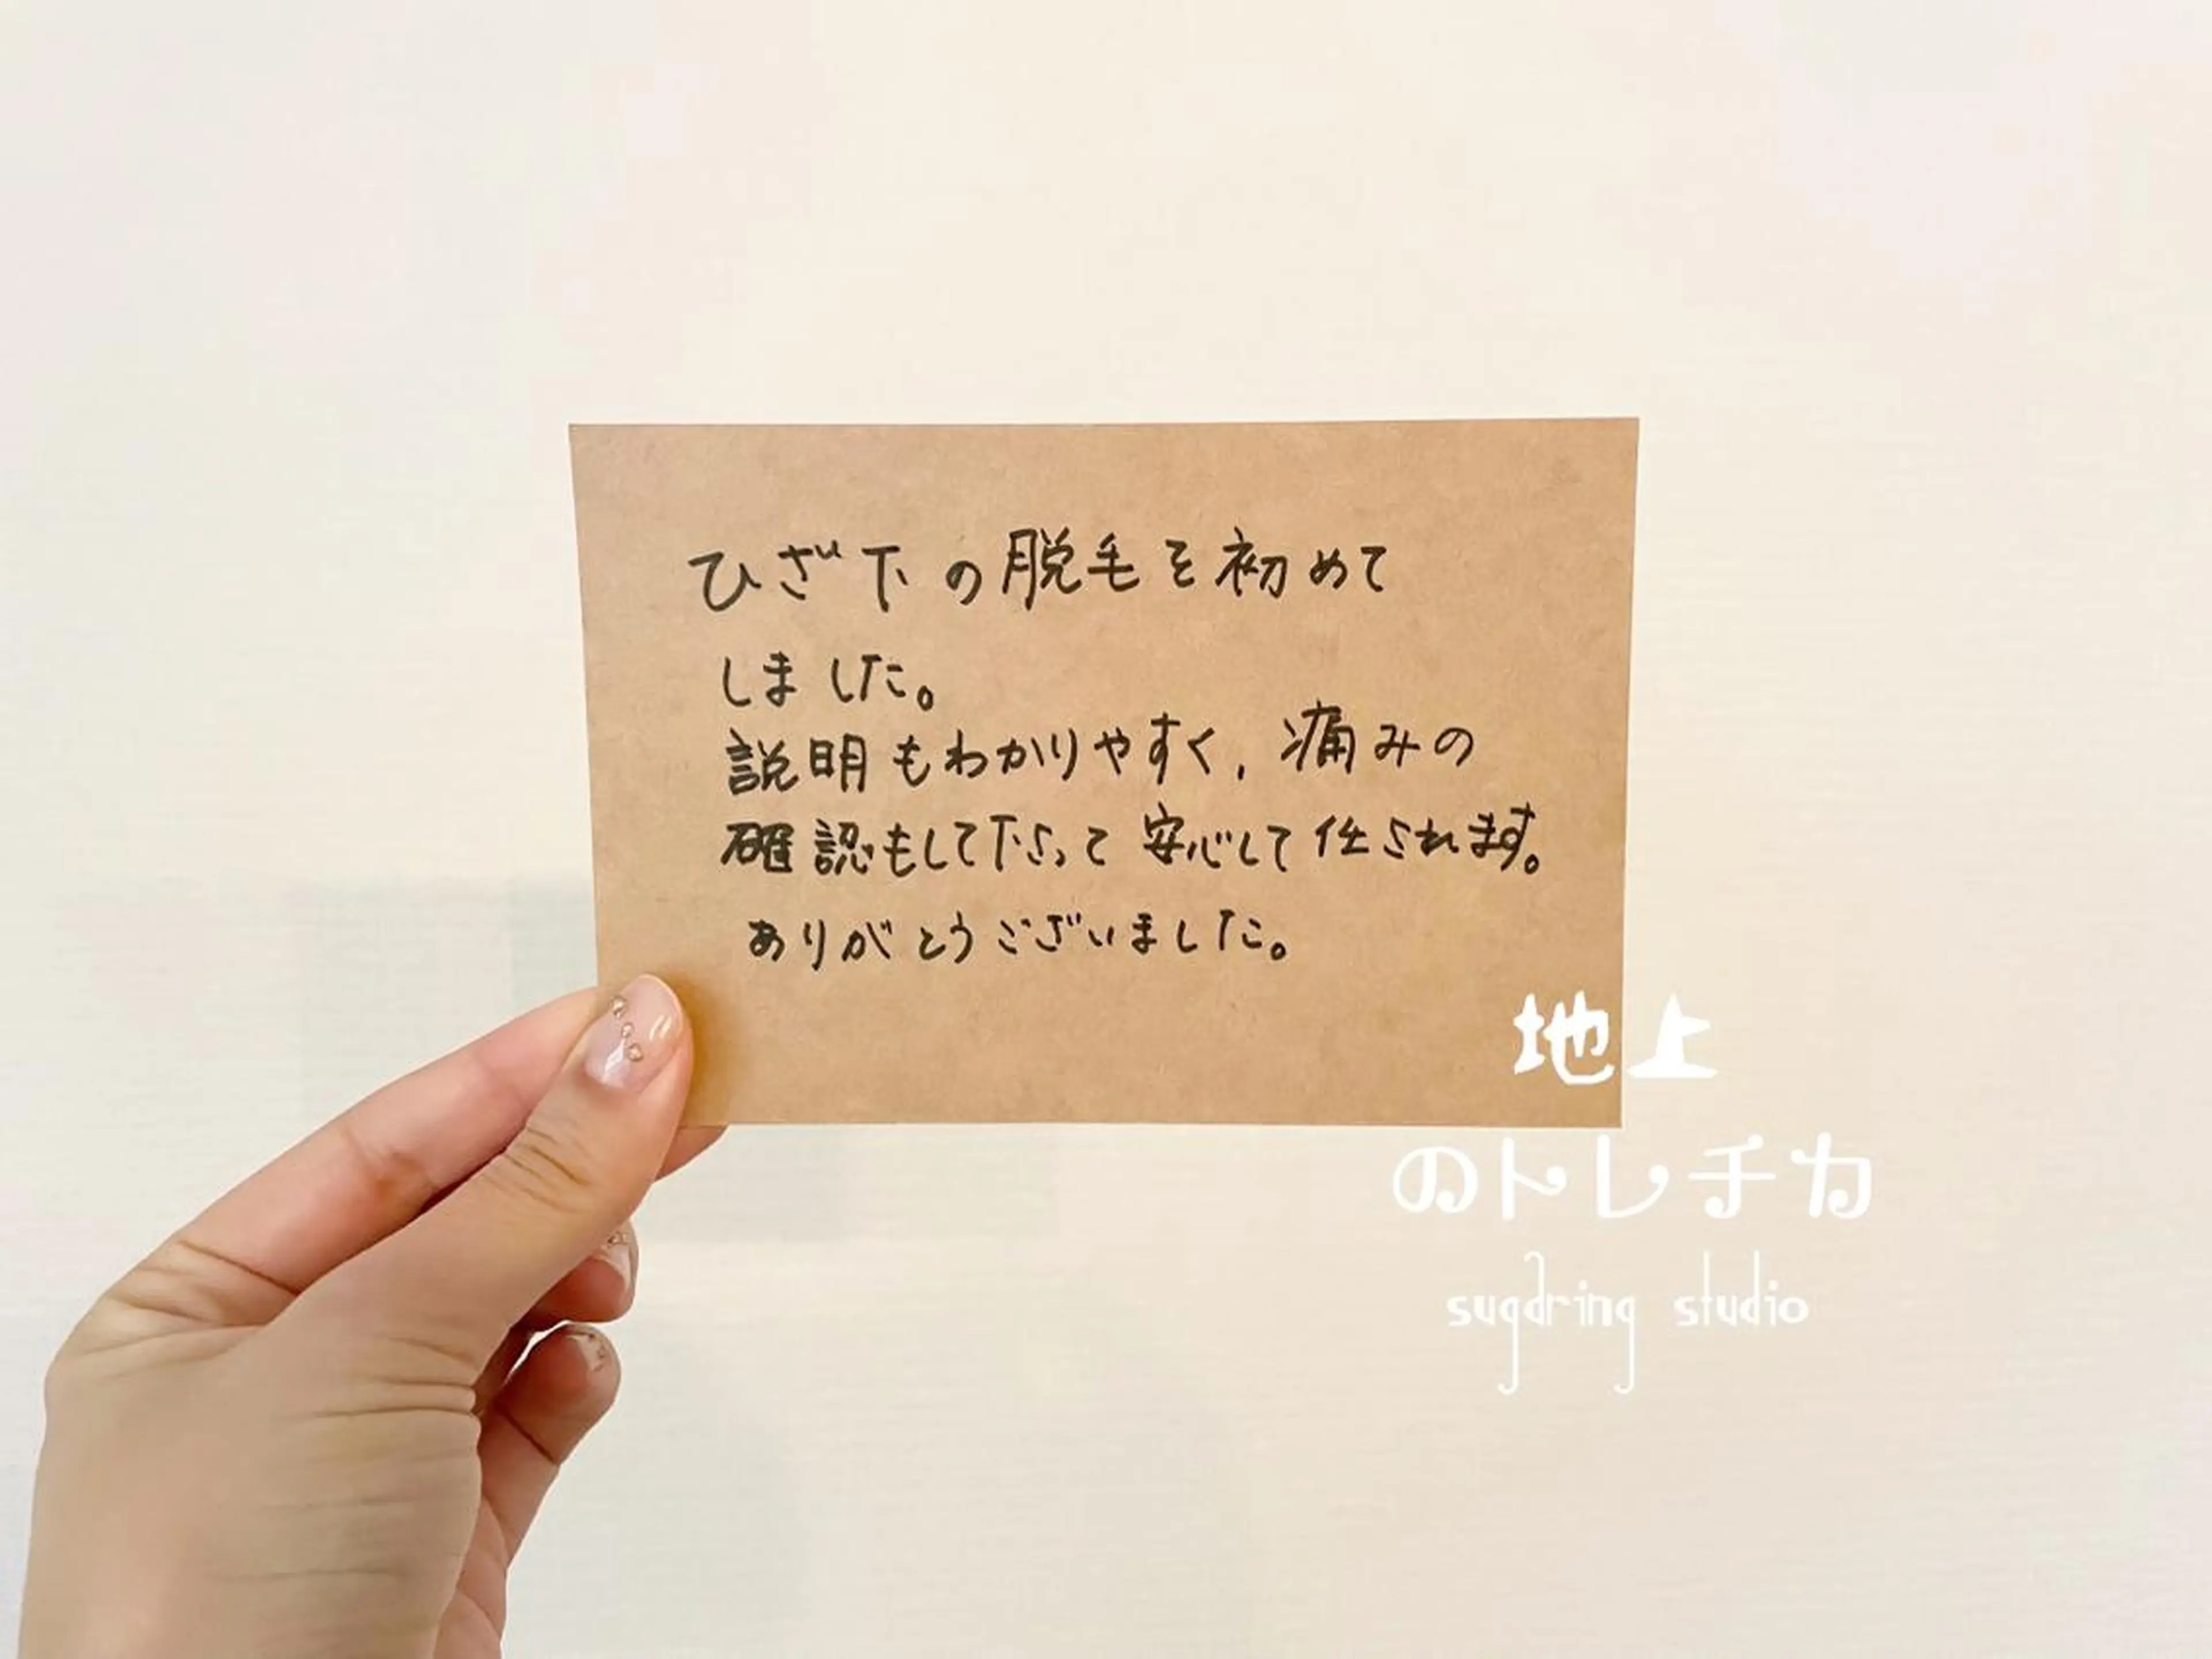 ひざ下の脱毛を初めて
しました。
説明もわかりやすく、痛みの
確認もして下さって安心して任されます。
ありがとうございました。
地上
のトレチカ
sugaring studio